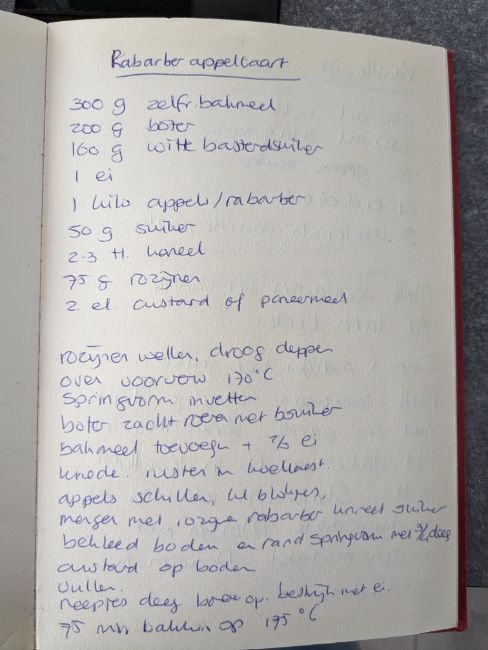 Rabarber appeltaart
300 g zelfr. bakmeel
200 g boter
160 g witte basterdsuiker
1 ei
1 kilo appels/rabarber
50 g suiker
2-3 tl. kaneel
75 g rozijnen
2 el. custard of paneermeel
rozijnen wellen, droog deppen
oven voorverw 170°C
Springvorm invetten
boter zacht roeren met bsuiker
bakmeel toevoegen + 2/3 ei
kneden. rusten in koelkast.
appels schillen, kl. blokjes,
mengen met rozijnen rabarber kaneel suiker
bekleed bodem en rand springvorm met 3/4 deeg
custard op bodem
vullen.
reepjes deeg boven op. bestrijk met ei.
75 min bakken op 175°C